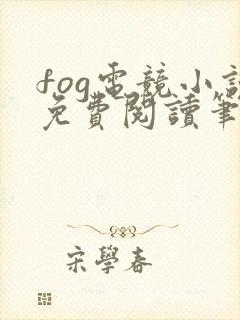 fog電競小說
免費閱讀筆
宋學春